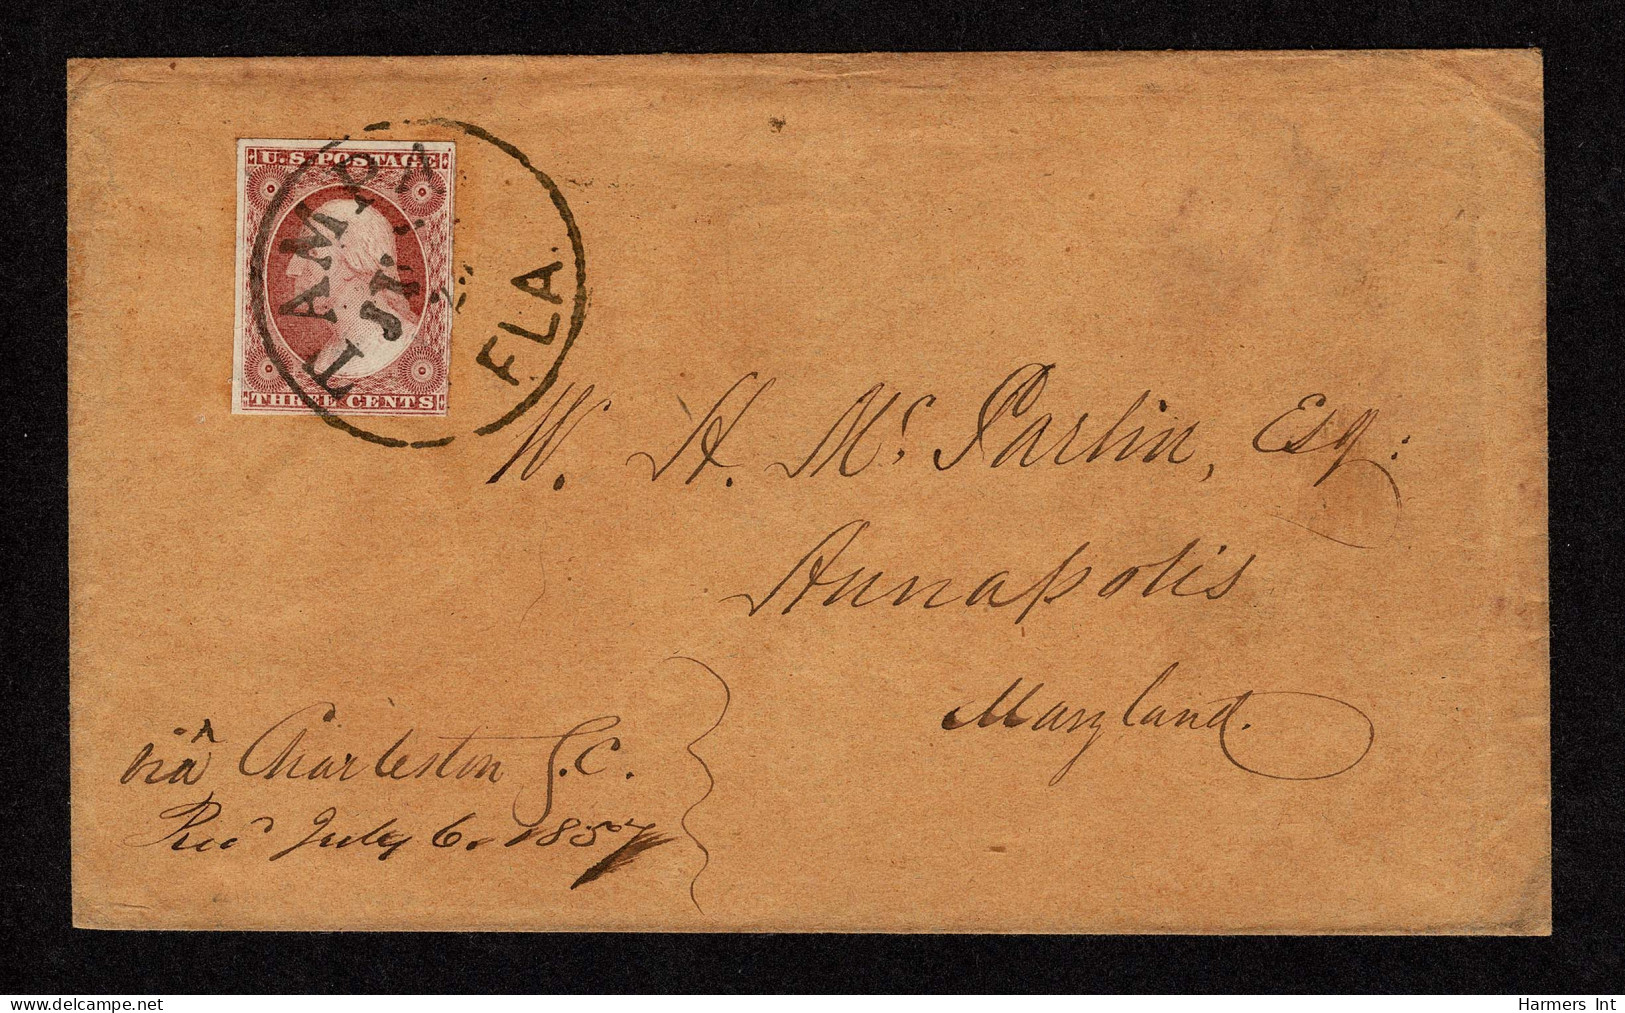 U.S. POSTAGE
THREE CENTS
TAMPA
FLA.
W. H. Mc. Parlin, Esq.
Annapolis
Maryland.
via Charleston S.C.
Rec'd July 6. 1857
Harmers Int